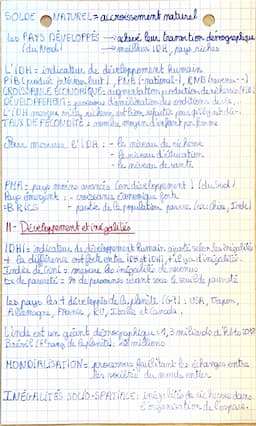 SOLDE NATUREL = accroissement naturel
Les PAYS DÉVELOPPÉS → achevé leur transition démographique
(du Nord) → meilleurs IDH, pays riches
L'IDH = indicateur de développement humain
PIB (produit intérieur brut), PNB (national-), RNB (revenu--)
CROISSANCE ÉCONOMIQUE = augmentation production de richesse (PIB)
DÉVELOPPEMENT = processus d'amélioration des conditions de vie
L'IDH mesure richesse
TAUX DE FÉCONDITÉ = nombre moyen d'enfant par femme
Pour mesurer l'IDH : - le niveau de richesse
- le niveau d'éducation
- le niveau de santé
PMA = pays moins avancés (en développement) (du Sud)
Pays émergent : - croissance économique forte
BRICS - partie de la population pauvre (ex: Chine, Inde)
II - Développement et inégalités
IDHI = indicateur de développement humain ajusté selon les inégalités
+ la différence est forte entre IDH et IDHI, + il y a d'inégalités
Indice de Gini = mesure les inégalités de revenus
Tx de pauvreté = % de personnes vivant sous le seuil de pauvreté
Les pays les + développés de la planète (G7) : USA, Japon,
Allemagne, France, RU, Italie et Canada.
L'Inde est un géant démographique : 1,3 milliards d'hab en 2018
Brésil
MONDIALISATION = processus facilitant les échanges entre
les sociétés du monde entier
INÉGALITÉS SOCIO-SPATIALE : inégalités de richesses dans
l'organisation de l'espace.